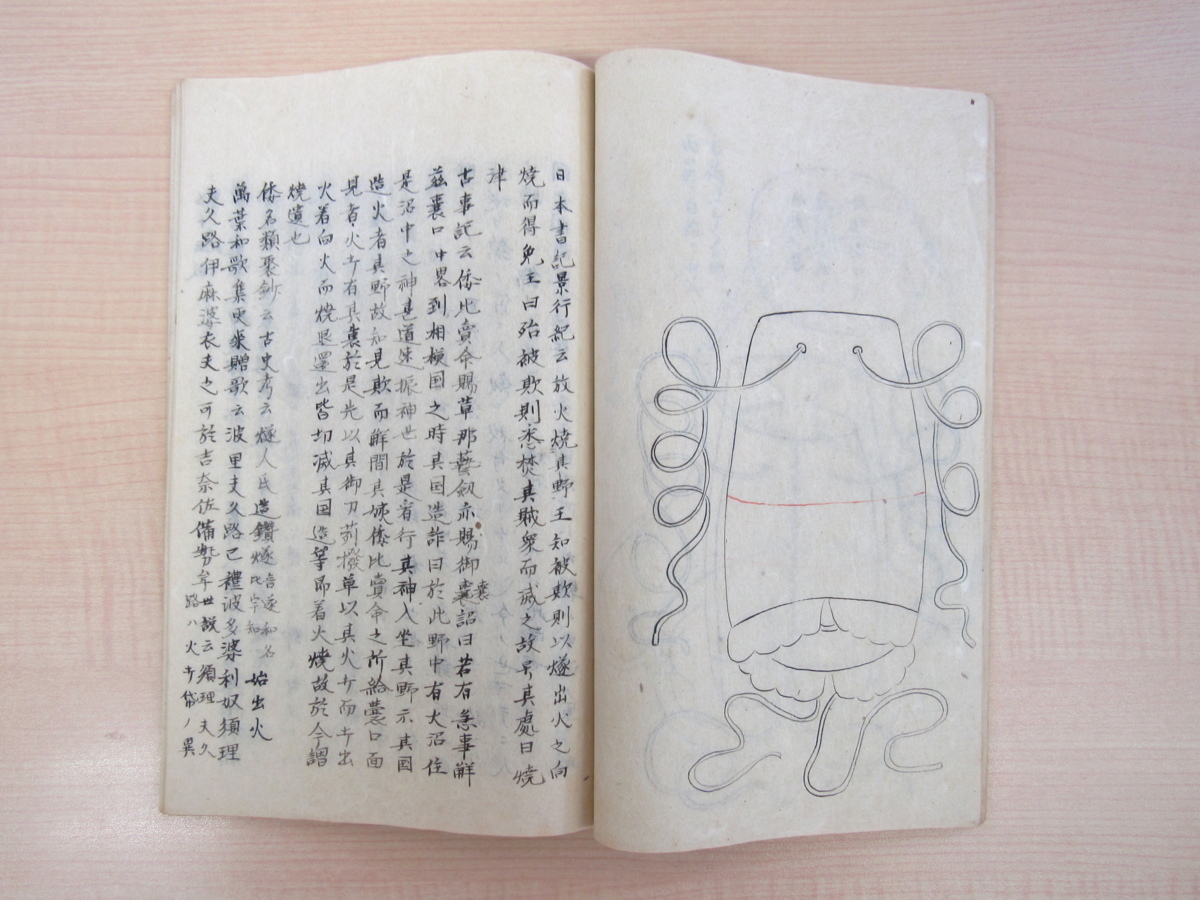 日本書記景行紀云放火焼其野王知被欺則以燧出火之向
焼而得免王曰殆被欺則悉焚其賊衆而滅之故号其處曰焼
津
古事記云倭比賣命賜草那藝劔亦賜御囊詔曰若有急事解
茲囊口中畧到相模国之時其国造詐曰於此野中有大沼住
是沼中之神甚道速振神也於是看行其神入坐其野尓其国
造火着其野故知見欺而解開其姨倭比賣命之所給囊口而
見者火打有其裏於是先以其御刀苅撥草以其火打而打出
火着向火而焼退還出皆切滅其国造等即着火焼故於今謂
焼遺也
倭名類聚鈔云古史考云燧人氏造鑽燧音遂和名比宇知始出火
萬葉和歌集更来贈歌云波里夫久路己禮波多婆利奴須理
夫久路伊麻婆衣天之可於吉奈佐備勢牟